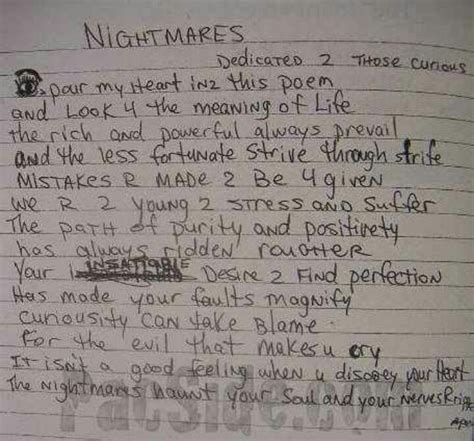 NIGHTMARES
DEDICATED 2 THOSE CURIOUS
pour my Heart in2 this poem
and Look 4 the meaning of Life
the rich and powerful always prevail
and the less fortunate strive through strife
MISTAKES R MADE 2 Be 4given
we R 2 young 2 STRESS AND SUFFER
The PATH of purity and positivety
has always ridden
Your INSATIABLE Desire 2 Find perfection
Has made your faults magnify
CURIOUSITY CAN take BLAME
for the evil that makes u cry
It isn't a good feeling when u disobey your Heart
The nightmares haunt your Soul and your Nerves R ripe
FacSide.com